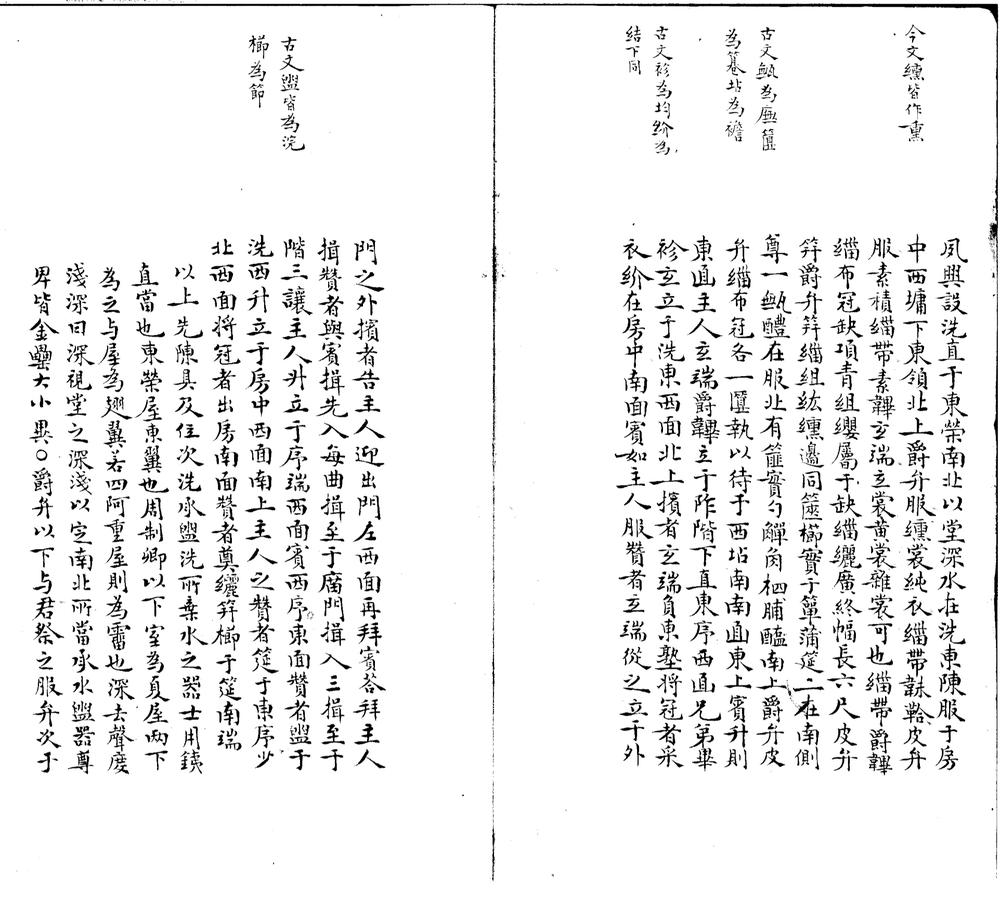 今文纁皆作熏
古文甒為廡篚
為篹坫為襜
古文袗為均紒為
結下同
夙興設洗直于東榮南北以堂深水在洗東陳服于房
中西墉下東領北上爵弁服纁裳純衣緇帶韎韐皮弁
服素積緇帶素韠玄端玄裳黃裳雜裳可也緇帶爵韠
緇布冠缺項青組纓屬于缺緇纚廣終幅長六尺皮弁
笄爵弁笄緇組紘纁邊同篋櫛實于簞蒲筵二在南側
尊一甒醴在服北有篚實勺觶角柶脯醢南上爵弁皮
弁緇布冠各一匴執以待于西坫南南面東上賓升則
東面主人玄端爵韠立于阼階下直東序西面兄弟畢
袗玄立于洗東西面北上擯者玄端負東塾將冠者采
衣紒在房中南面賓如主人服贊者玄端從之立于外
古文盥皆為浣
櫛為節
門之外擯者告主人迎出門左西面再拜賓荅拜主人
揖贊者與賓揖先入每曲揖至于廟門揖入三揖至于
階三讓主人升立于序端西面賓西序東面贊者盥于
洗西升立于房中西面南上主人之贊者筵于東序少
北西面將冠者出房南面贊者奠纚笄櫛于筵南端
以上先陳具及位次洗承盥洗所棄水之器士用鐵
直當也東榮屋東翼也周制卿以下室為夏屋兩下
為之与屋為翅翼若四阿重屋則為霤也深去聲度
淺深曰深視堂之深淺以定南北所當承水盥器尊
卑皆金罍大小異○爵弁以下与君祭之服弁次于